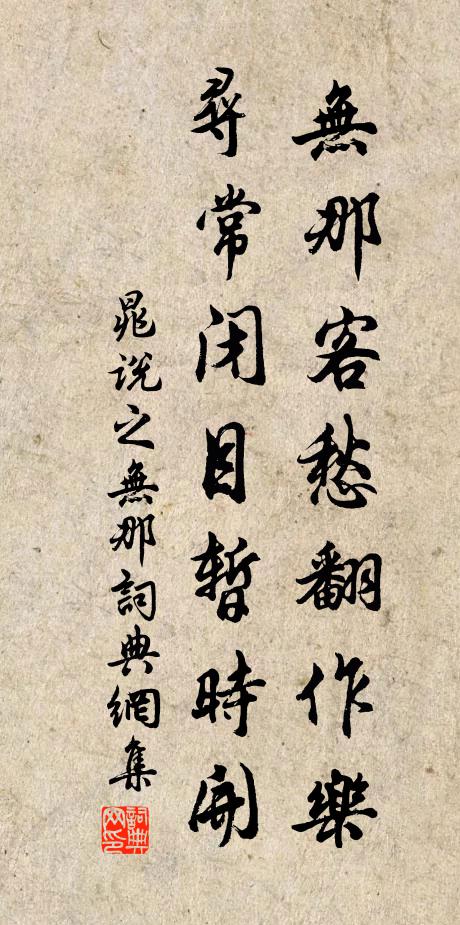 無那客愁翻作樂
尋常閉目暫時開
晁說之無那詞典網集
詞典网印